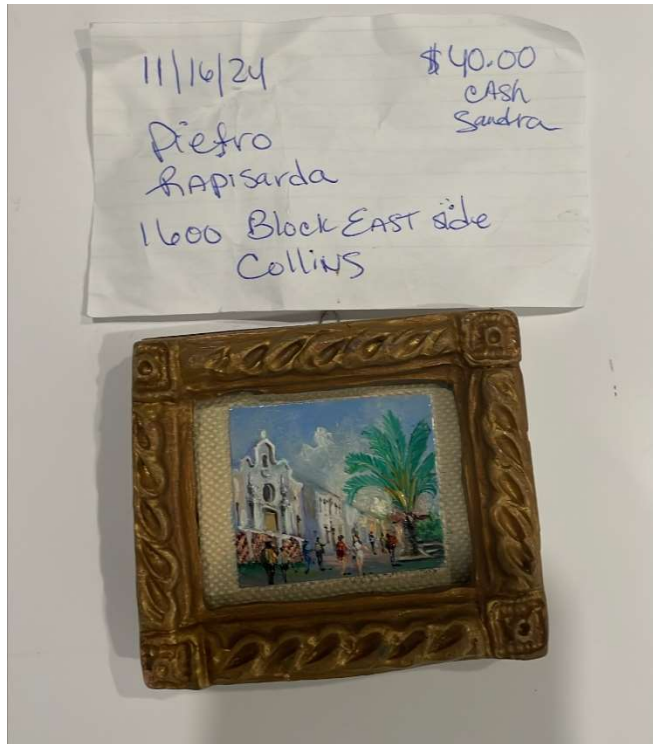 11/16/24
$40.00
CASh
Sandra
Pietro
RAPisarda
1600 Block EAST side
Collins